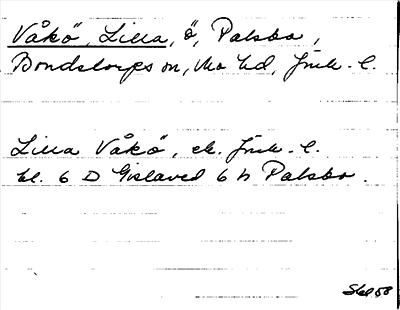 Våkö, Lilla, ö, Palsbo,
Bondstorps sn, Mo hd, Jönk. l.
Lilla Våkö, ek. Jönk. l.
bl. 6 D Gislaved 6 h Palsbo.
Skl 58